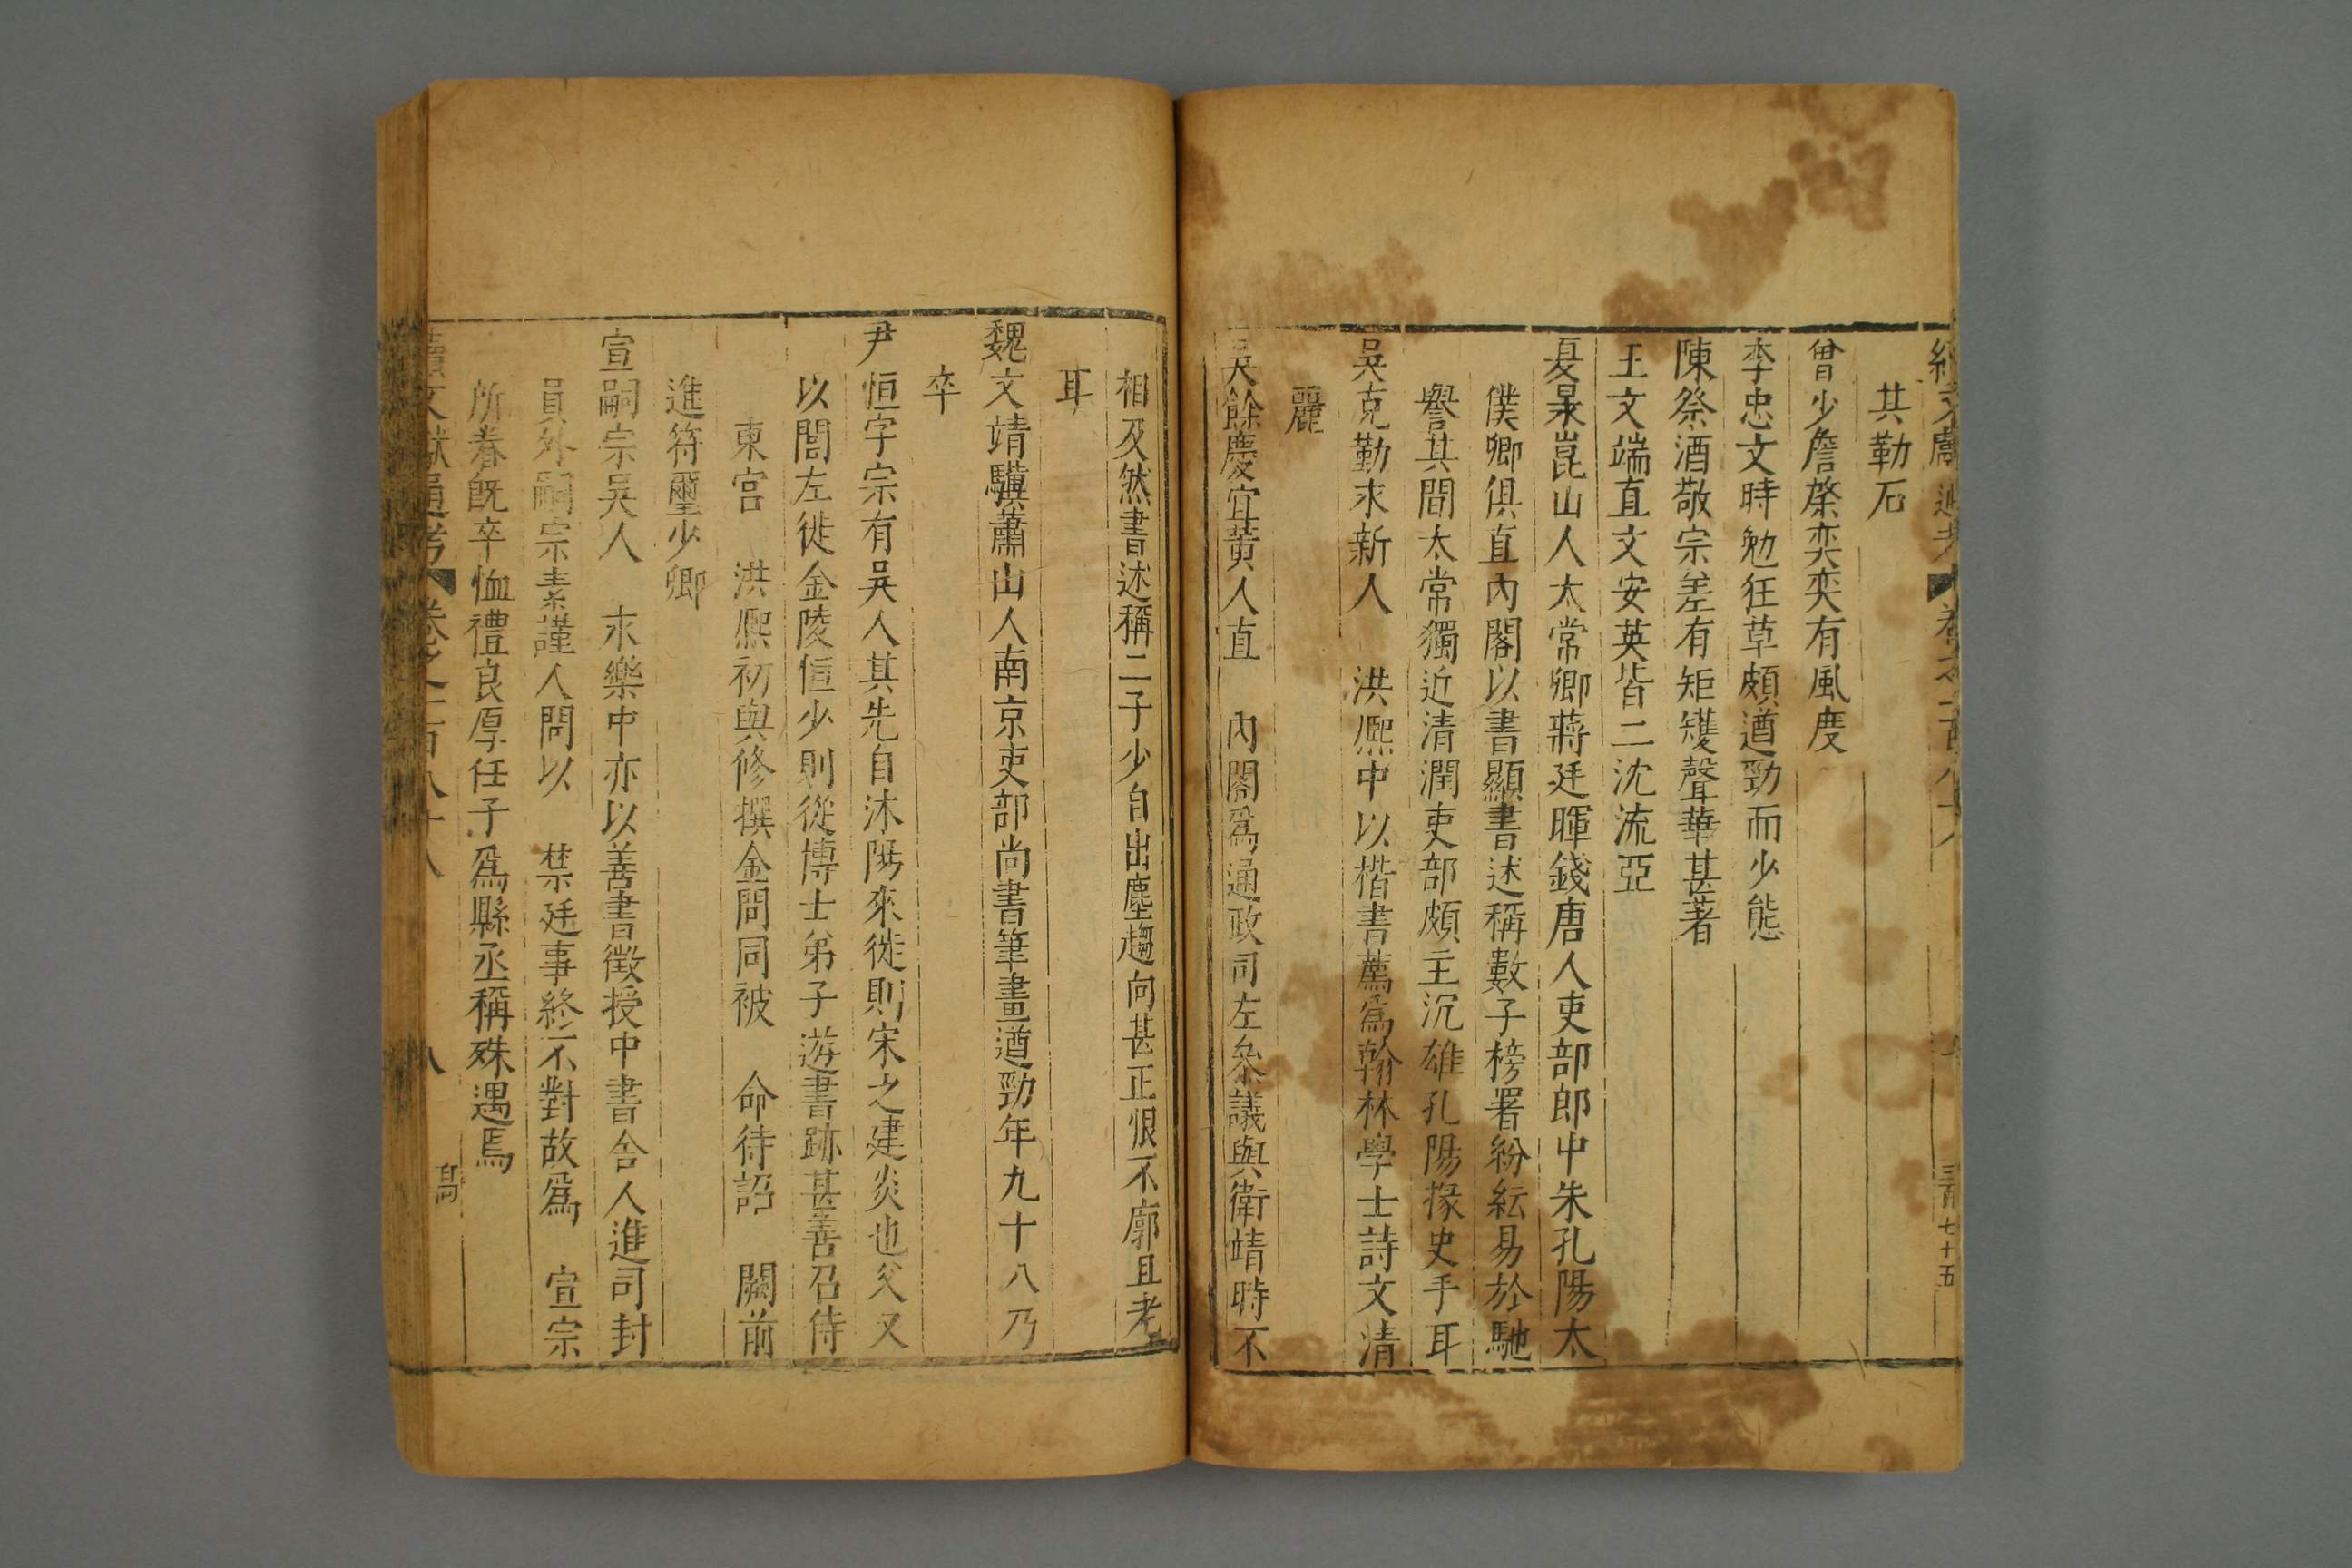 續文獻通考 卷之一百八十八 三百七十五
其勒石
曾少詹棨奕奕有風度
李忠文時勉狂草頗遒勁而少態
陳祭酒敬宗差有矩矱聲華甚著
王文端直文安英皆二沈流亞
夏㫤崑山人太常卿蔣廷暉錢唐人吏部郎中朱孔陽太
僕卿俱直內閣以書顯書述稱數子榜署紛紜易於馳
譽其間太常獨近清潤吏部頗主沉雄孔陽掾史手耳
吳克勤永新人 洪熙中以楷書薦爲翰林學士詩文清
麗
吳餘慶宜黃人直 內閣爲通政司左叅議與衛靖時不
相及然書述稱二子少自出塵趨向甚正恨不廓且老
耳
魏文靖驥蕭山人南京吏部尚書筆畫遒勁年九十八乃
卒
尹恒字宗有吳人其先自沐陽來徙則宋之建炎也父又
以閭左徙金陵恒少則從博士弟子遊書跡甚善召侍
東宮 洪熙初與修撰金問同被 命待詔 闕前
進符璽少卿
宣嗣宗吳人 永樂中亦以善書徵授中書舍人進司封
員外嗣宗素謹人問以 禁廷事終不對故爲 宣宗
所眷旣卒恤禮良厚任子爲縣丞稱殊遇焉
續文獻通考 卷之一百八十八 八 高